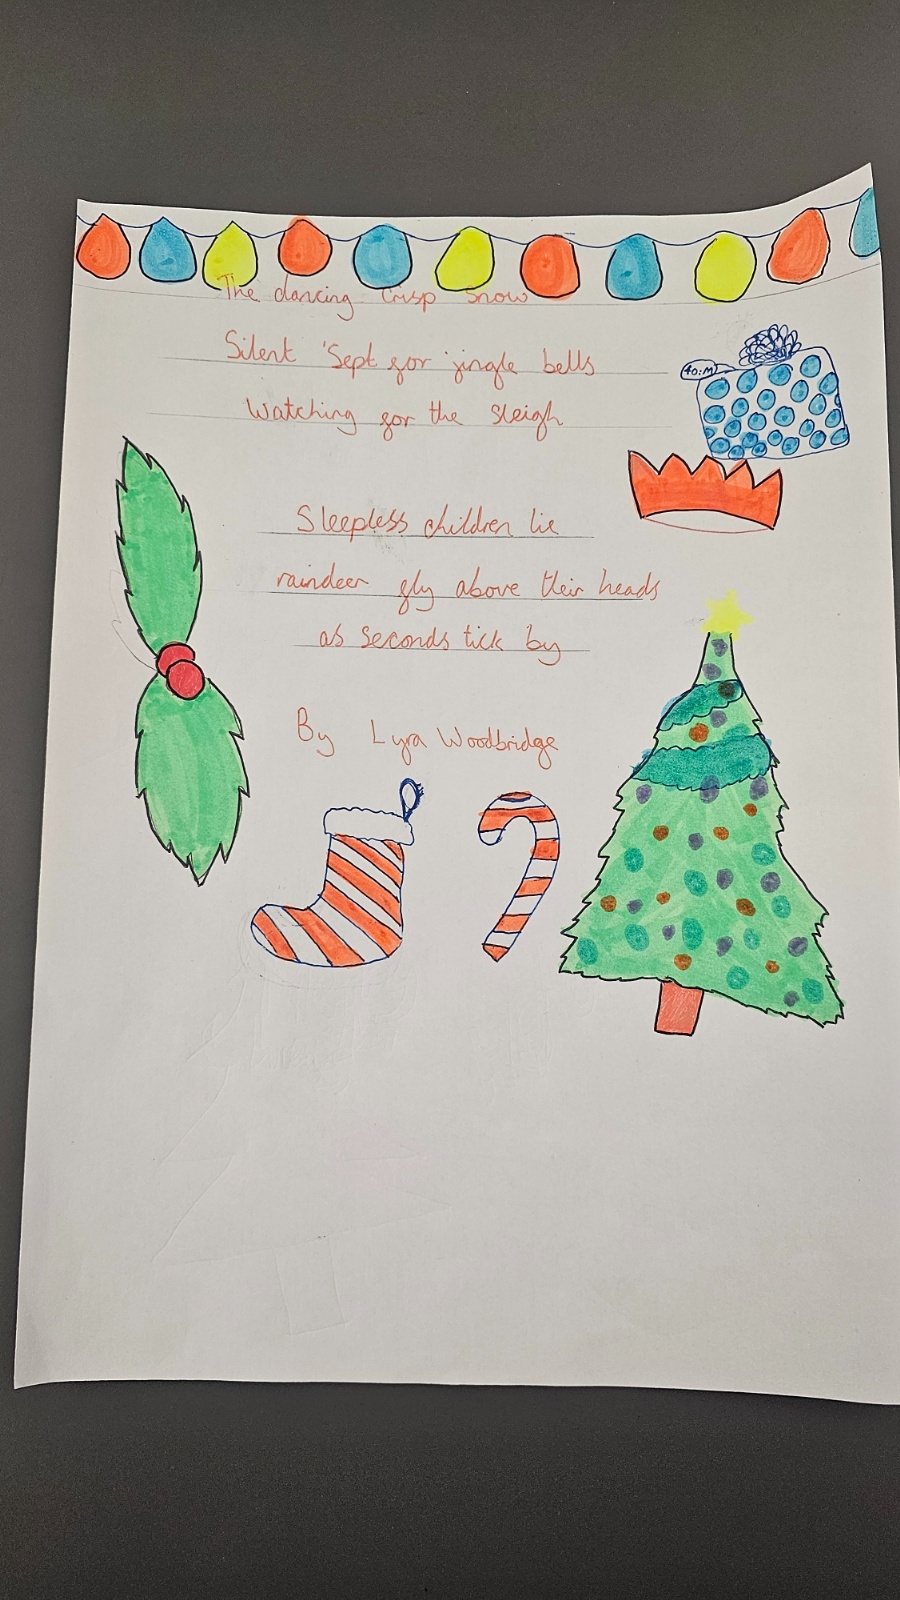 The dancing Crisp Snow
Silent 'Sept for jingle bells
Watching for the sleigh
Sleepless children lie
raindeer fly above their heads
as seconds tick by
By Lyra Woodbridge